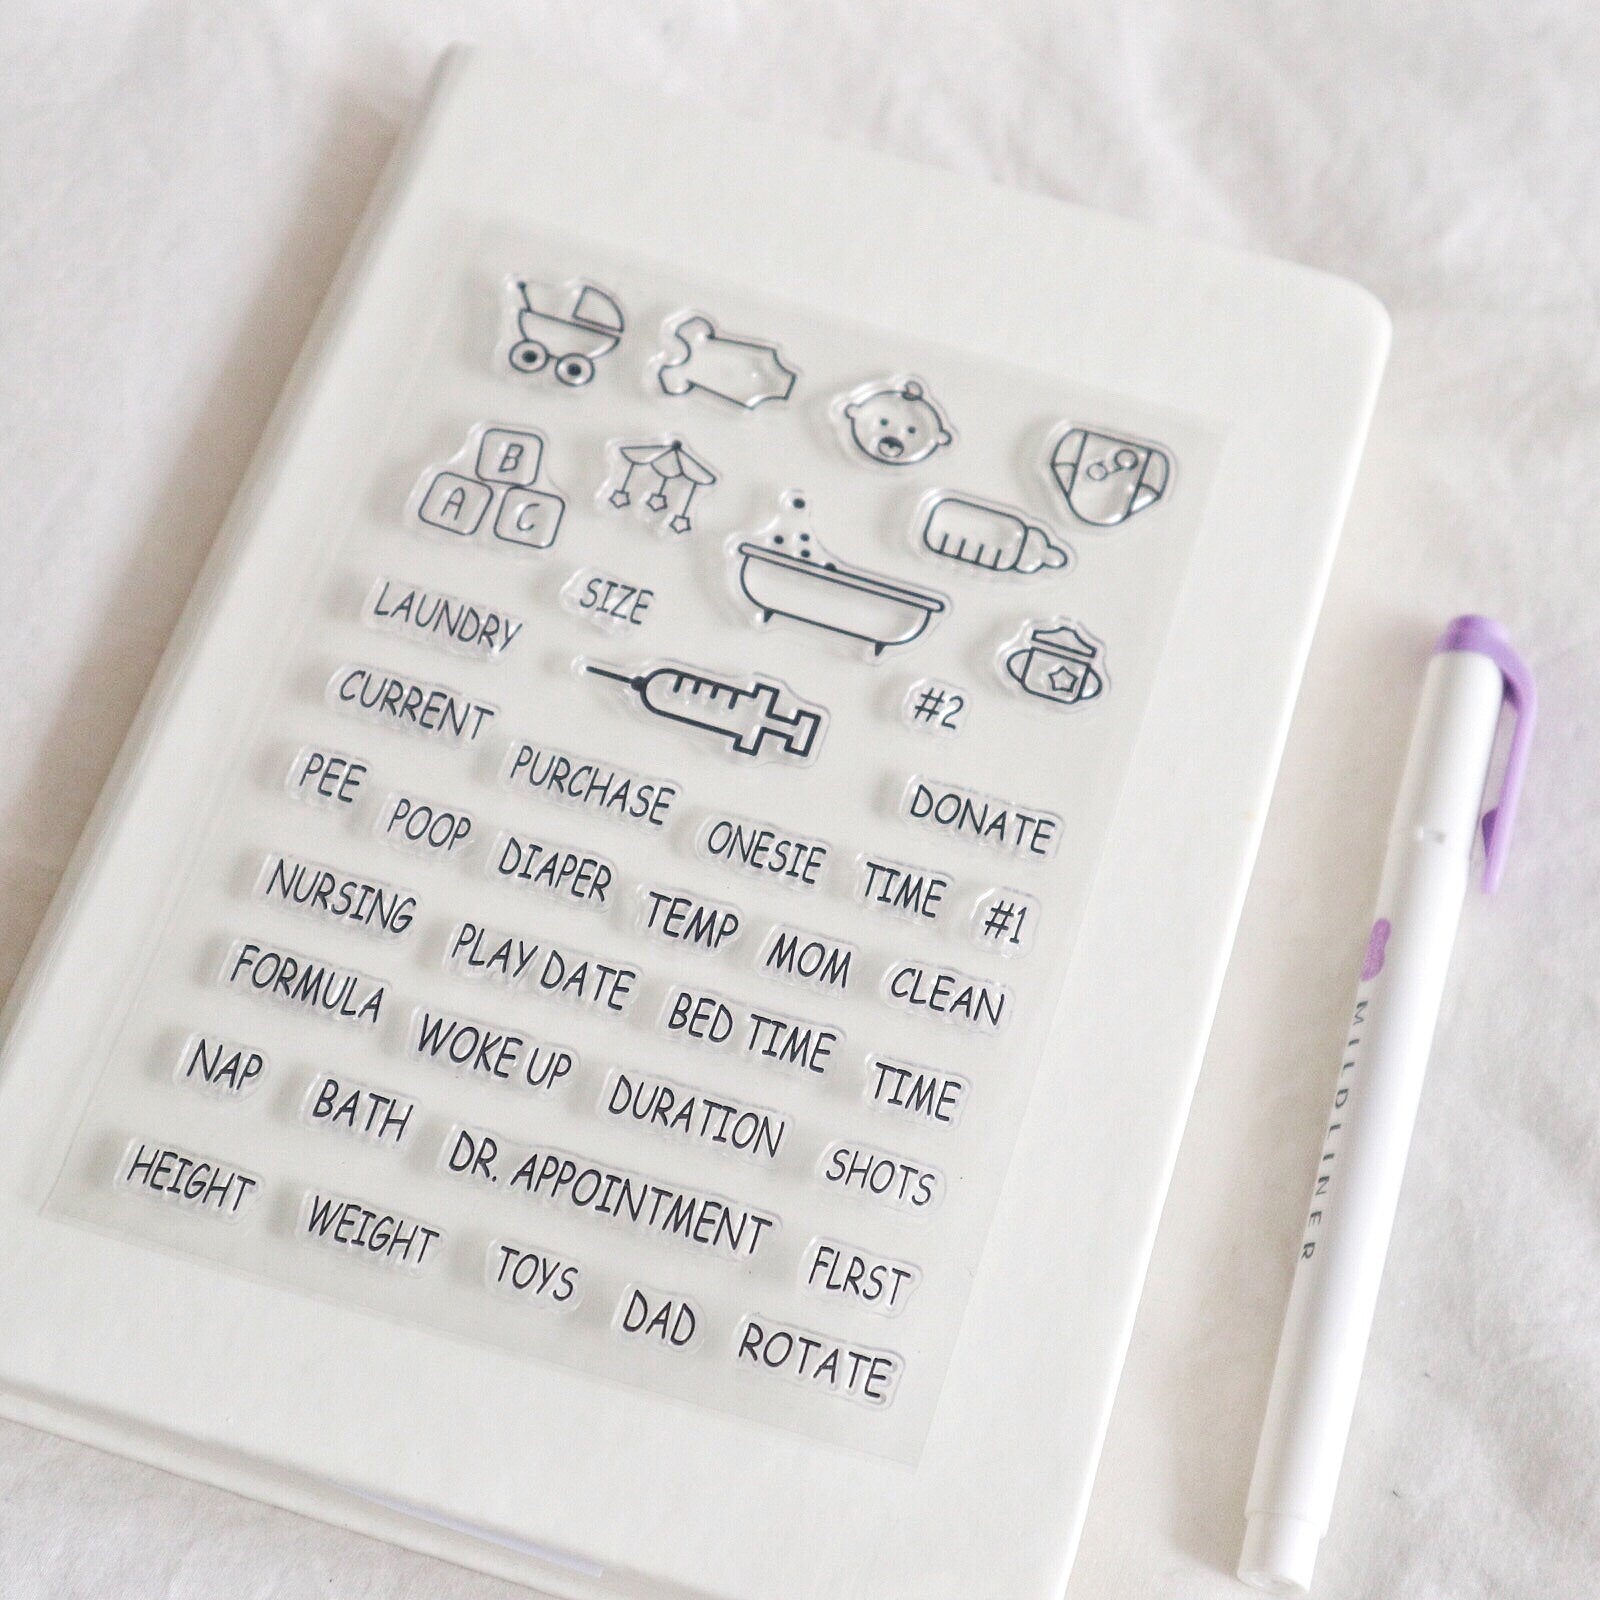 B
A C
LAUNDRY SIZE
CURRENT #2
PEE PURCHASE DONATE
POOP DIAPER ONESIE TIME #1
NURSING TEMP MOM CLEAN
FORMULA PLAY DATE BED TIME TIME
NAP WOKE UP DURATION SHOTS
BATH DR. APPOINTMENT FLRST
HEIGHT WEIGHT TOYS DAD ROTATE
MILDLINER